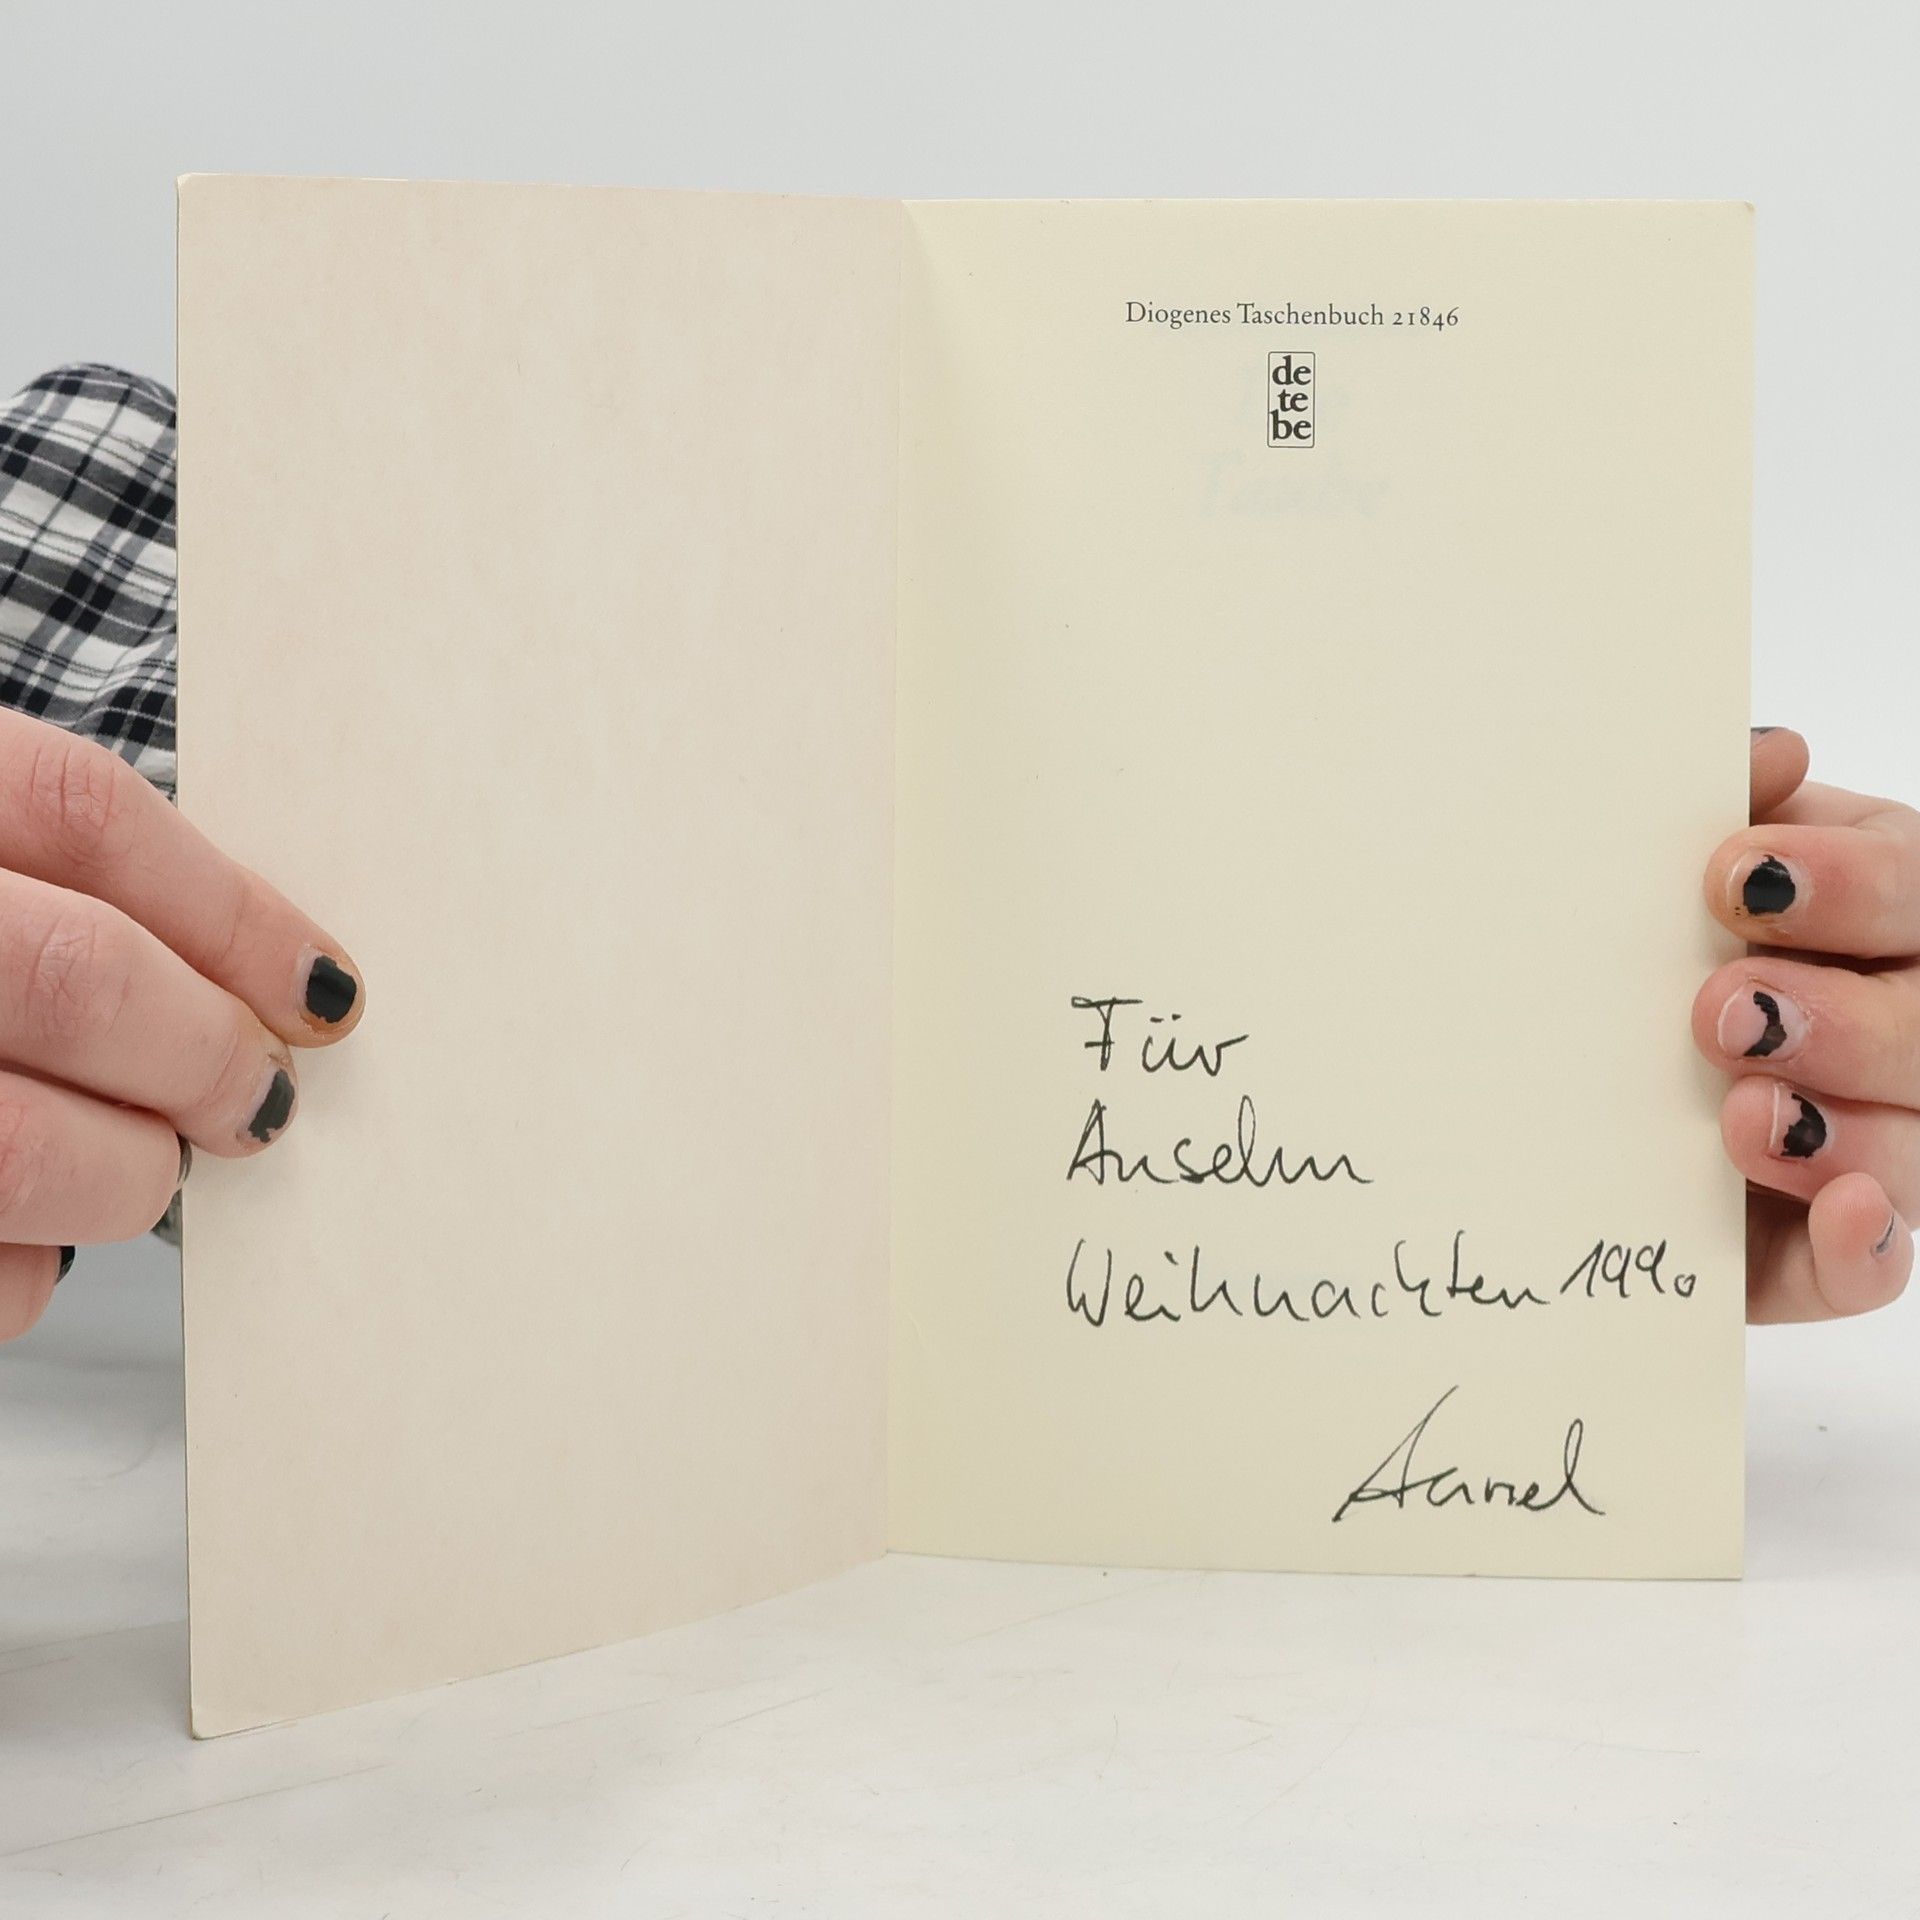 Diogenes Taschenbuch 21846
de
te
be
Taube
Für
Anselm
Weihnachten 1990